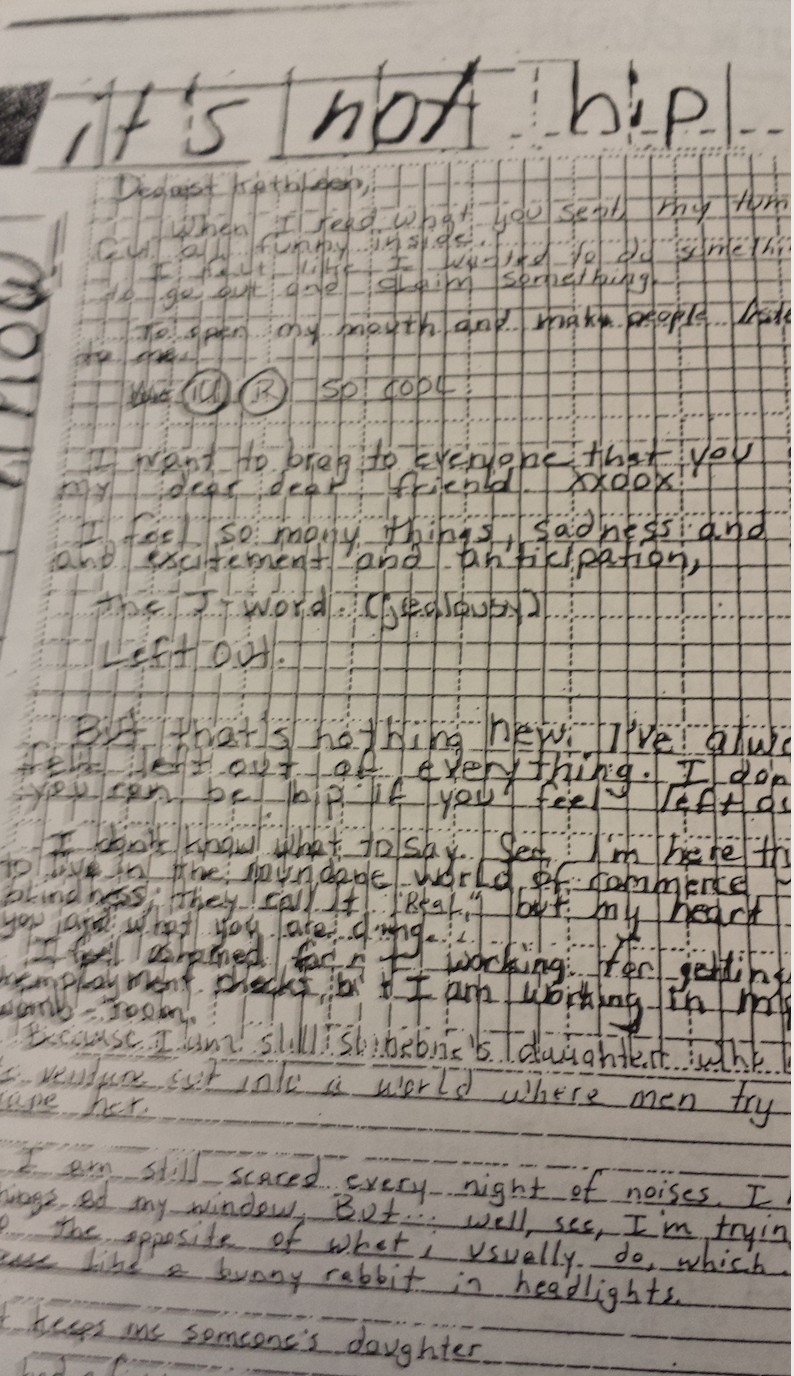 it's not hip
Dearest Kathleen,
When I read what you sent, my tum
Got all funny inside.
I felt like I wanted to do somethi
to go out and claim something.
To open my mouth and make people liste
to me.
U R so cool
I want to brag to everyone that you
my dear dear friend. xxoox
I feel so many things, sadness and
and excitement and anticipation,
the J-word. (jealousy)
Left Out.
But that's nothing new. I've alwa
felt left out of everything. I don
you can be hip if you feel left ou
I don't know what to say. See, I'm here tr
to live in the mundane world of commerce
blindness, they call it "Real," but my heart
you and what you are doing...
I feel ashamed for not working, for getting
unemployment checks, but I am working in my
womb-room.
Because I am still someone's daughter
venture out into a world where men try
rape her.
I am still scared every night of noises. I
things at my window. But... well, see, I'm tryin
the opposite of what I usually do, which
like a bunny rabbit in headlights.
t keeps me someone's daughter